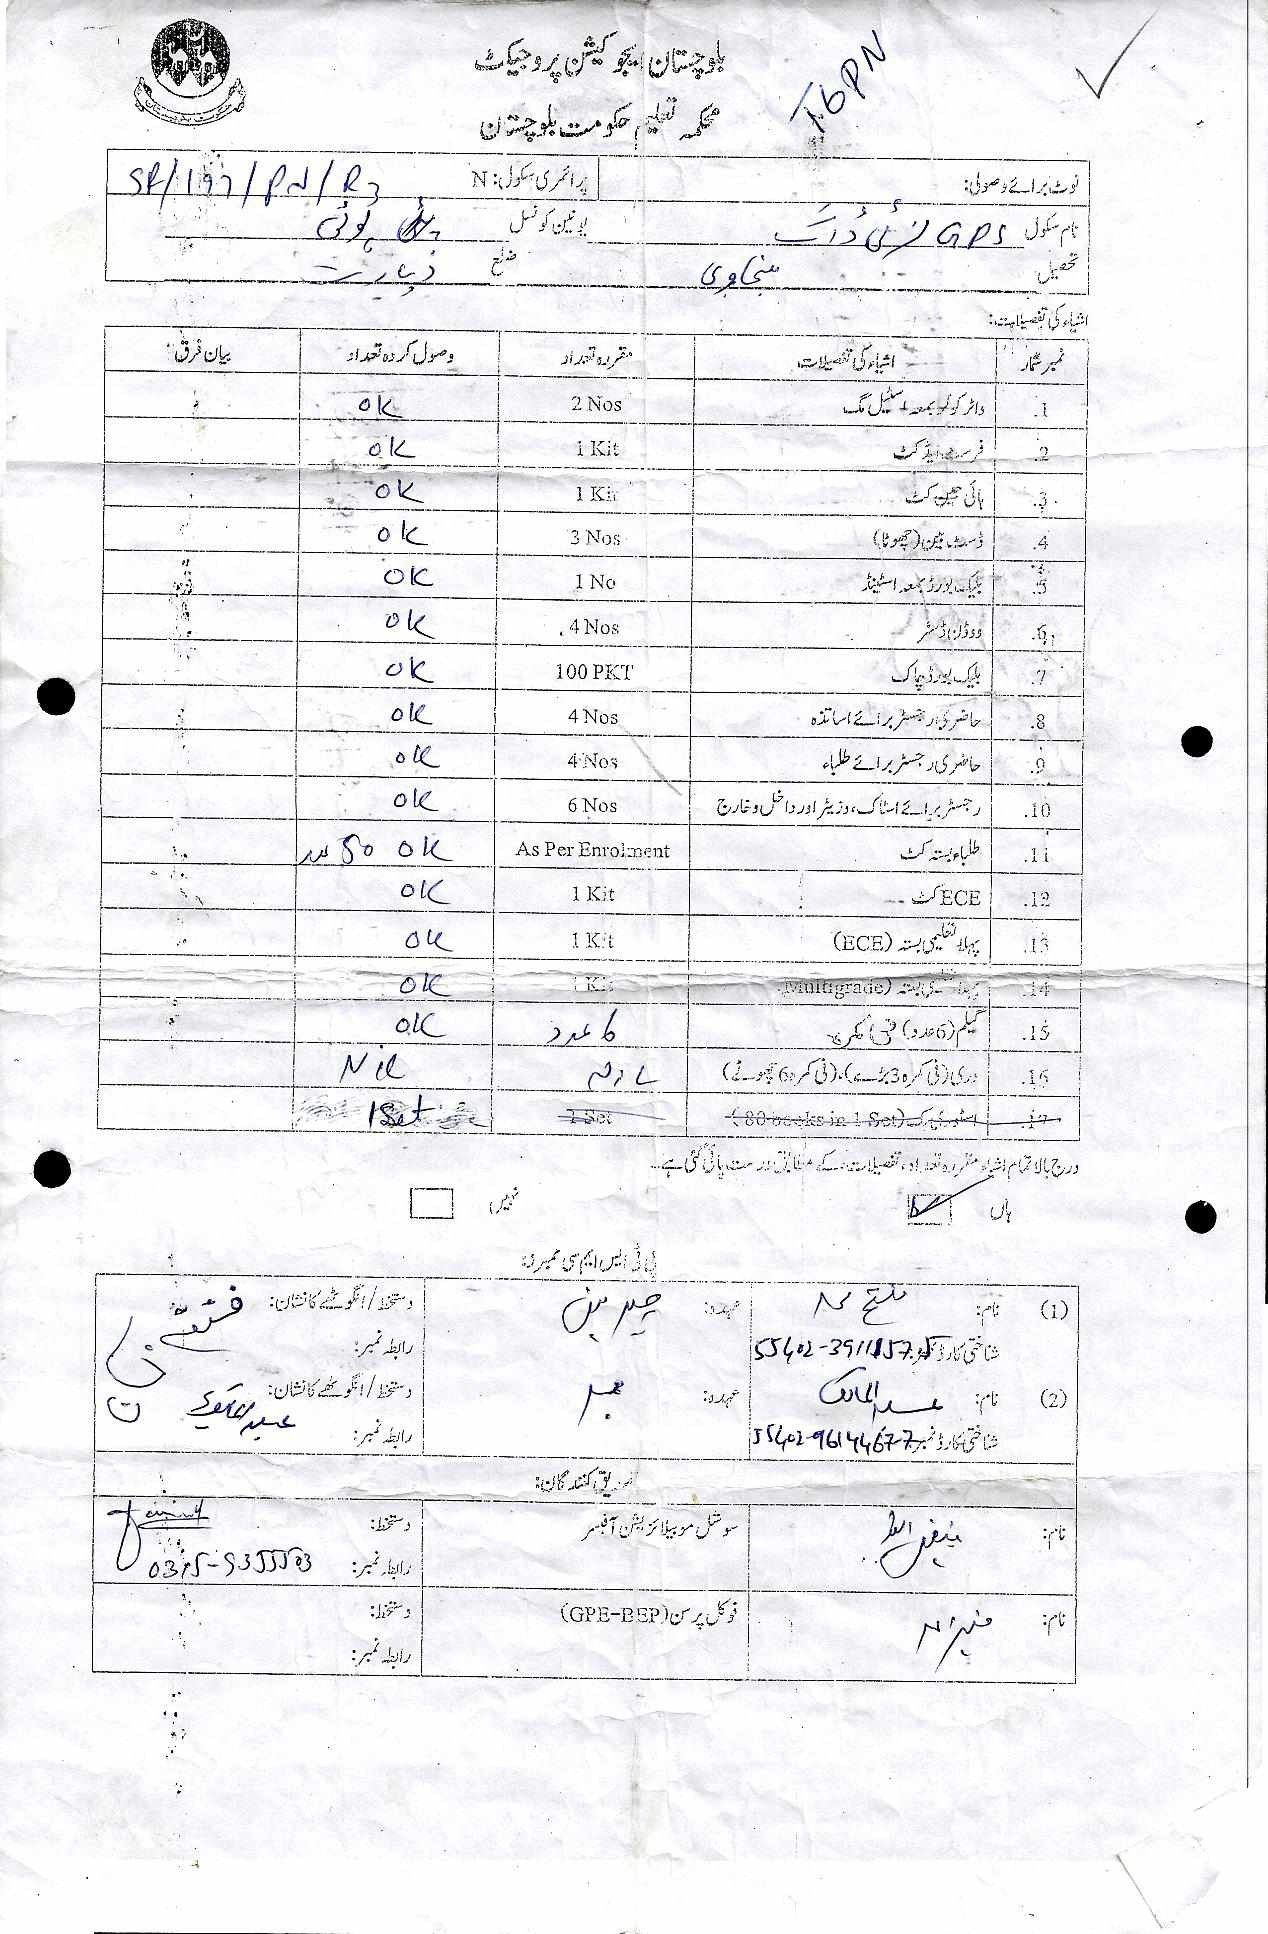 بلوچستان ایجوکیشن پروجیکٹ
محکمہ تعلیم حکومت بلوچستان
T6PN
نوٹ برائے وصولی: پرائمری سکول: N SR/197/PN/R3
نام سکول GPS یونین کونسل
تحصیل سنجاوی ضلع زیارت
اشیاء کی تفصیلات:
نمبر شمار اشیاء کی تفصیلات مقررہ تعداد وصول کردہ تعداد بیان فرق
1. واٹر کولر بمعہ سٹیل مگ 2 Nos OK
2. فرسٹ ایڈ کٹ 1 Kit OK
3. ہائی جین کٹ 1 Kit OK
4. ڈسٹ بین (چھوٹا) 3 Nos OK
5. بلیک بورڈ بمعہ اسٹینڈ 1 No OK
6. ووڈن ڈسٹر 4 Nos OK
7. بلیک بورڈ چاک 100 PKT OK
8. حاضری رجسٹر برائے اساتذہ 4 Nos OK
9. حاضری رجسٹر برائے طلباء 4 Nos OK
10. رجسٹر برائے اسٹاک، وزیٹر اور داخل و خارج 6 Nos OK
11. طلباء بستہ کٹ As Per Enrolment OK 50
12. ECE کٹ 1 Kit OK
13. پہلا تعلیمی بستہ (ECE) 1 Kit OK
14. پہلا تعلیمی بستہ (Multigrade) 1 Kit OK
15. گیلم (6 عدد) فی کمرہ 6 عدد OK
16. دری (فی کمرہ 3 بڑے)، (فی کمرہ 6 چھوٹے) Nil
17. اسٹوری بک (80 books in 1 Set) 1 Set 1 Set
درج بالا تمام اشیاء مقررہ تعداد، تفصیلات کے مطابق درست پائی گئی ہے۔
ہاں نہیں
پی ٹی ایس ایم سی ممبرز:
(1) نام: فتح محمد عہدہ: چیئرمین دستخط/انگوٹھے کا نشان:
شناختی کارڈ نمبر: رابطہ نمبر:
(2) نام: عبدالمالک عہدہ: ممبر دستخط/انگوٹھے کا نشان: عبدالمالک
شناختی کارڈ نمبر: 55402-9614467-7 رابطہ نمبر:
تصدیق کنندگان:
نام: سوشل موبیلائزیشن آفیسر دستخط:
رابطہ نمبر: 0315-9355503
نام: فوکل پرسن (GPE-BEP) دستخط:
رابطہ نمبر: